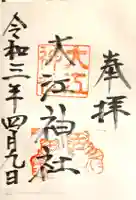 奉拝
大江神社
令和三年四月九日